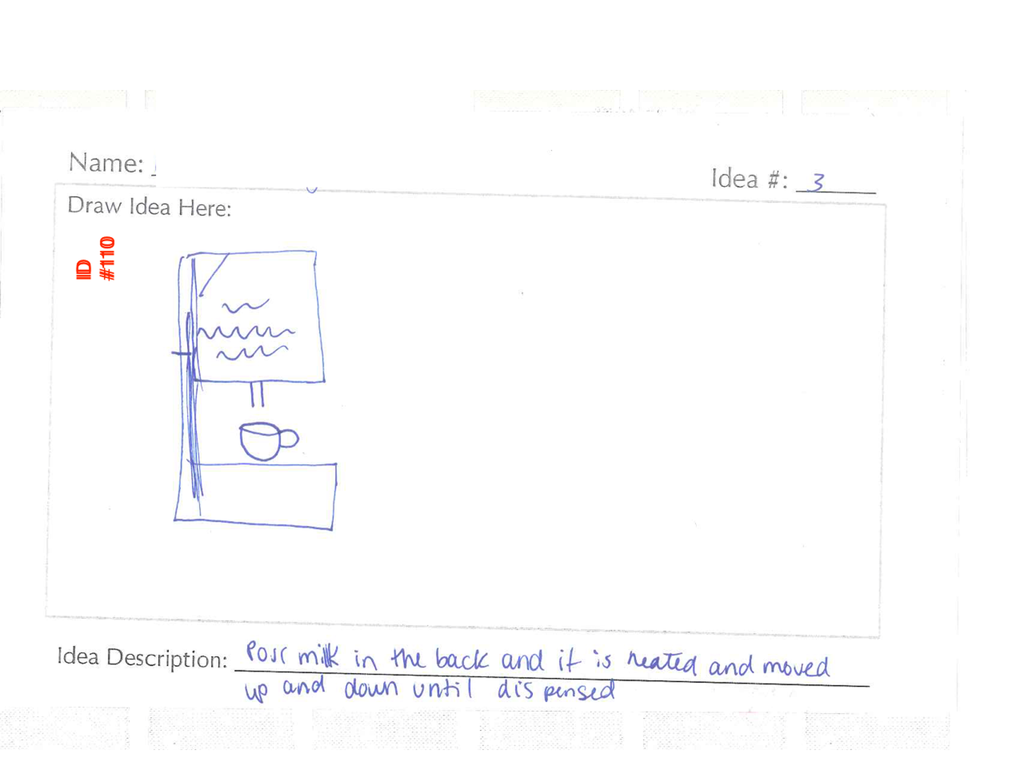 Name:
Idea #: 3
Draw Idea Here:
ID
#110
Idea Description: Pour milk in the back and it is heated and moved
up and down until dispensed